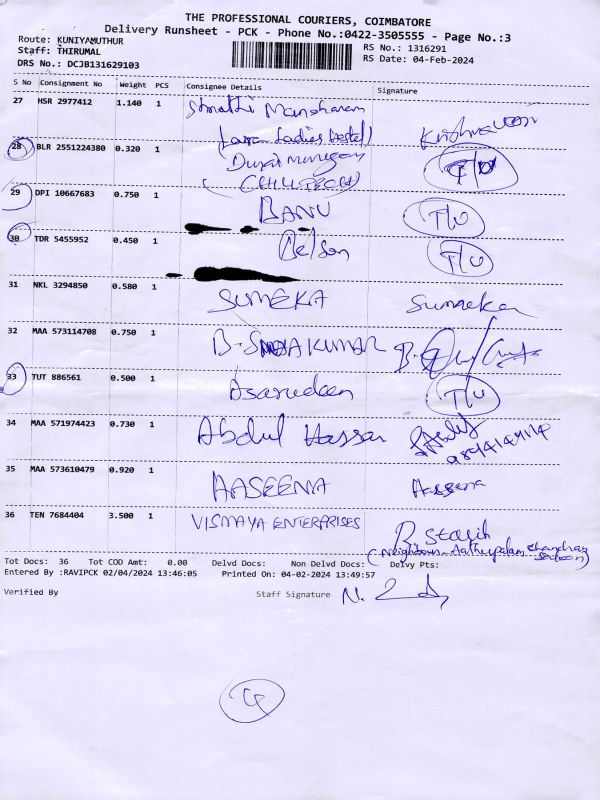 THE PROFESSIONAL COURIERS, COIMBATORE
Delivery Runsheet - PCK - Phone No.:0422-3505555 - Page No.:3
Route: KUNIYAMUTHUR
Staff: THIRUMAL
DRS No.: DCJB131629103
RS No.: 1316291
RS Date: 04-Feb-2024
S No Consignment No Weight PCS Consignee Details Signature
27 HSR 2977412 1.140 1
Ladies hostel)
28 BLR 2551224380 0.320 1 Durai murugan T/U
29 DPI 10667683 0.750 1 BANU T/U
30 TDR 5455952 0.450 1 Nelson T/U
31 NKL 3294850 0.580 1 SUMEKA Sumeka
32 MAA 573114708 0.750 1 KUMAR
33 TUT 886561 0.500 1 Asarudeen T/U
34 MAA 571974423 0.730 1 Abdul Hassan
35 MAA 573610479 0.920 1 HASEENA
36 TEN 7684404 3.500 1 VISMAYA ENTERPRISES
Tot Docs: 36 Tot COD Amt: 0.00 Delvd Docs: Non Delvd Docs: Delvy Pts:
Entered By :RAVIPCK 02/04/2024 13:46:05 Printed On: 04-02-2024 13:49:57
Verified By Staff Signature